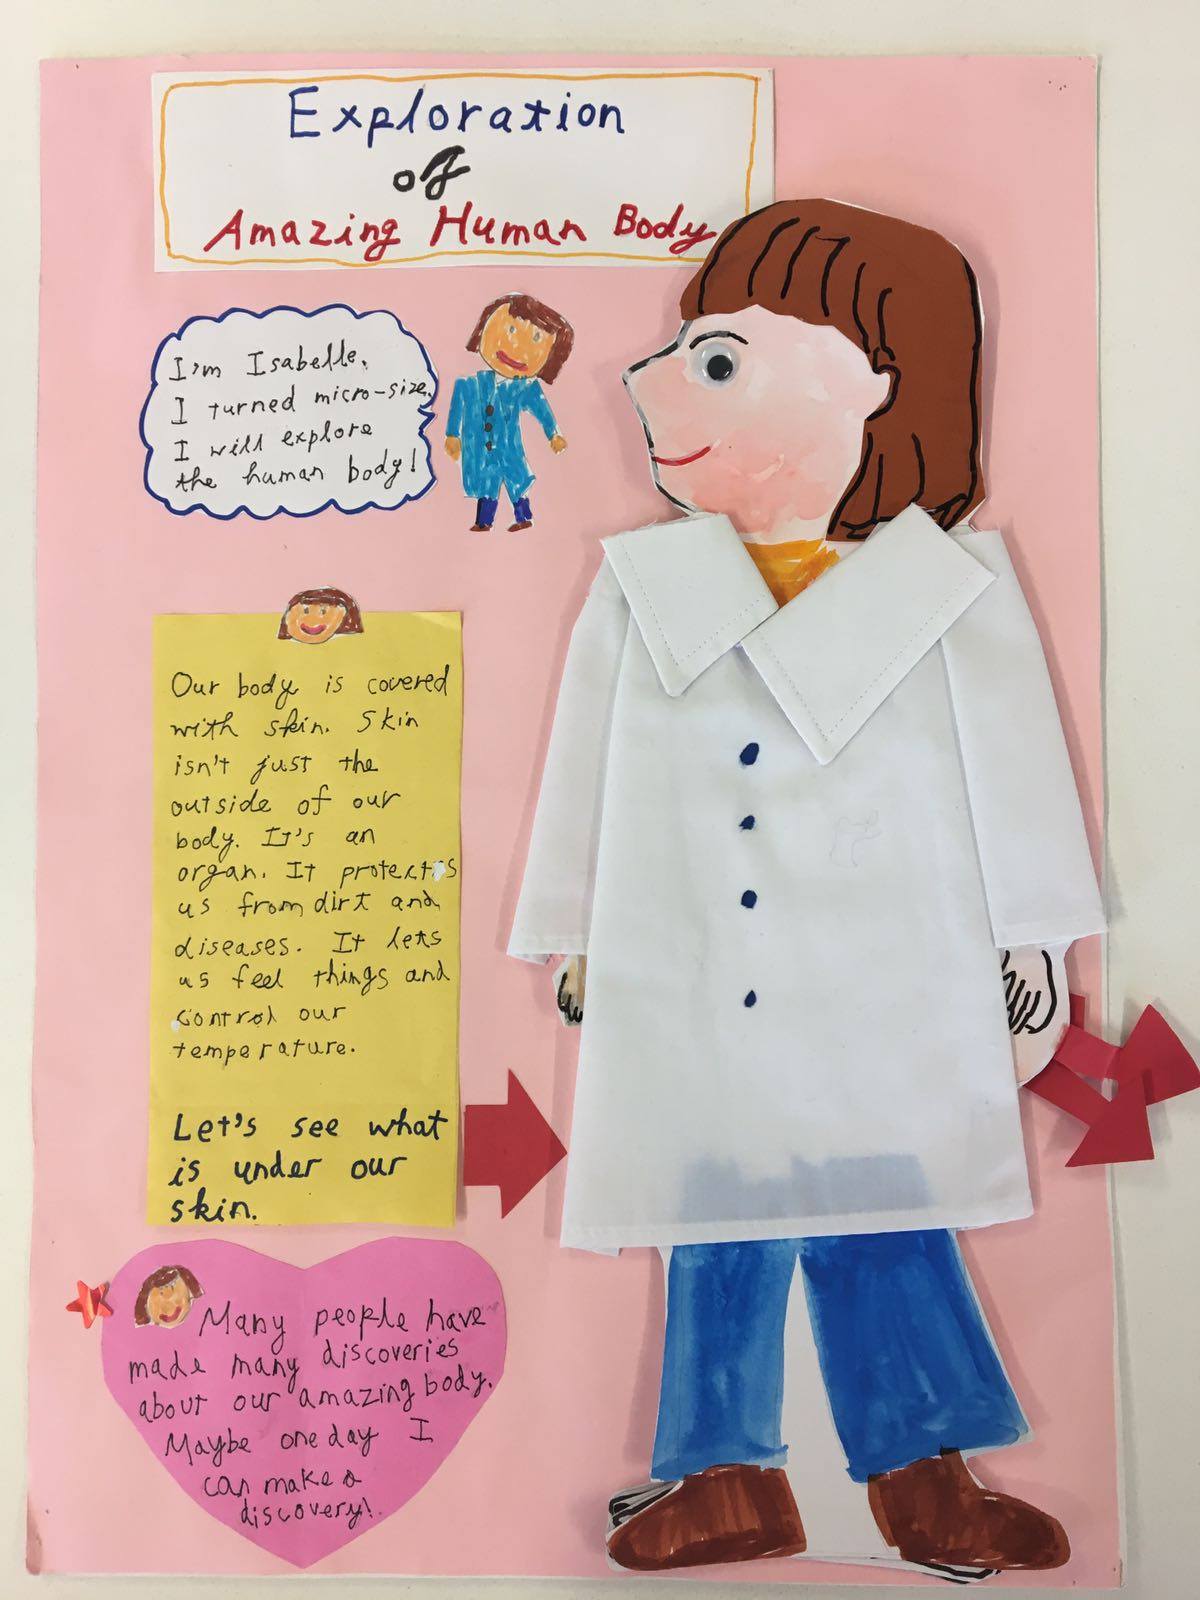 Exploration
of
Amazing Human Body
I'm Isabelle.
I turned micro-size.
I will explore
the human body!
Our body is covered
with skin. Skin
isn't just the
outside of our
body. It's an
organ. It protects
us from dirt and
diseases. It lets
us feel things and
control our
temperature.
Let's see what
is under our
skin.
Many people have
made many discoveries
about our amazing body.
Maybe one day I
can make a
discovery!